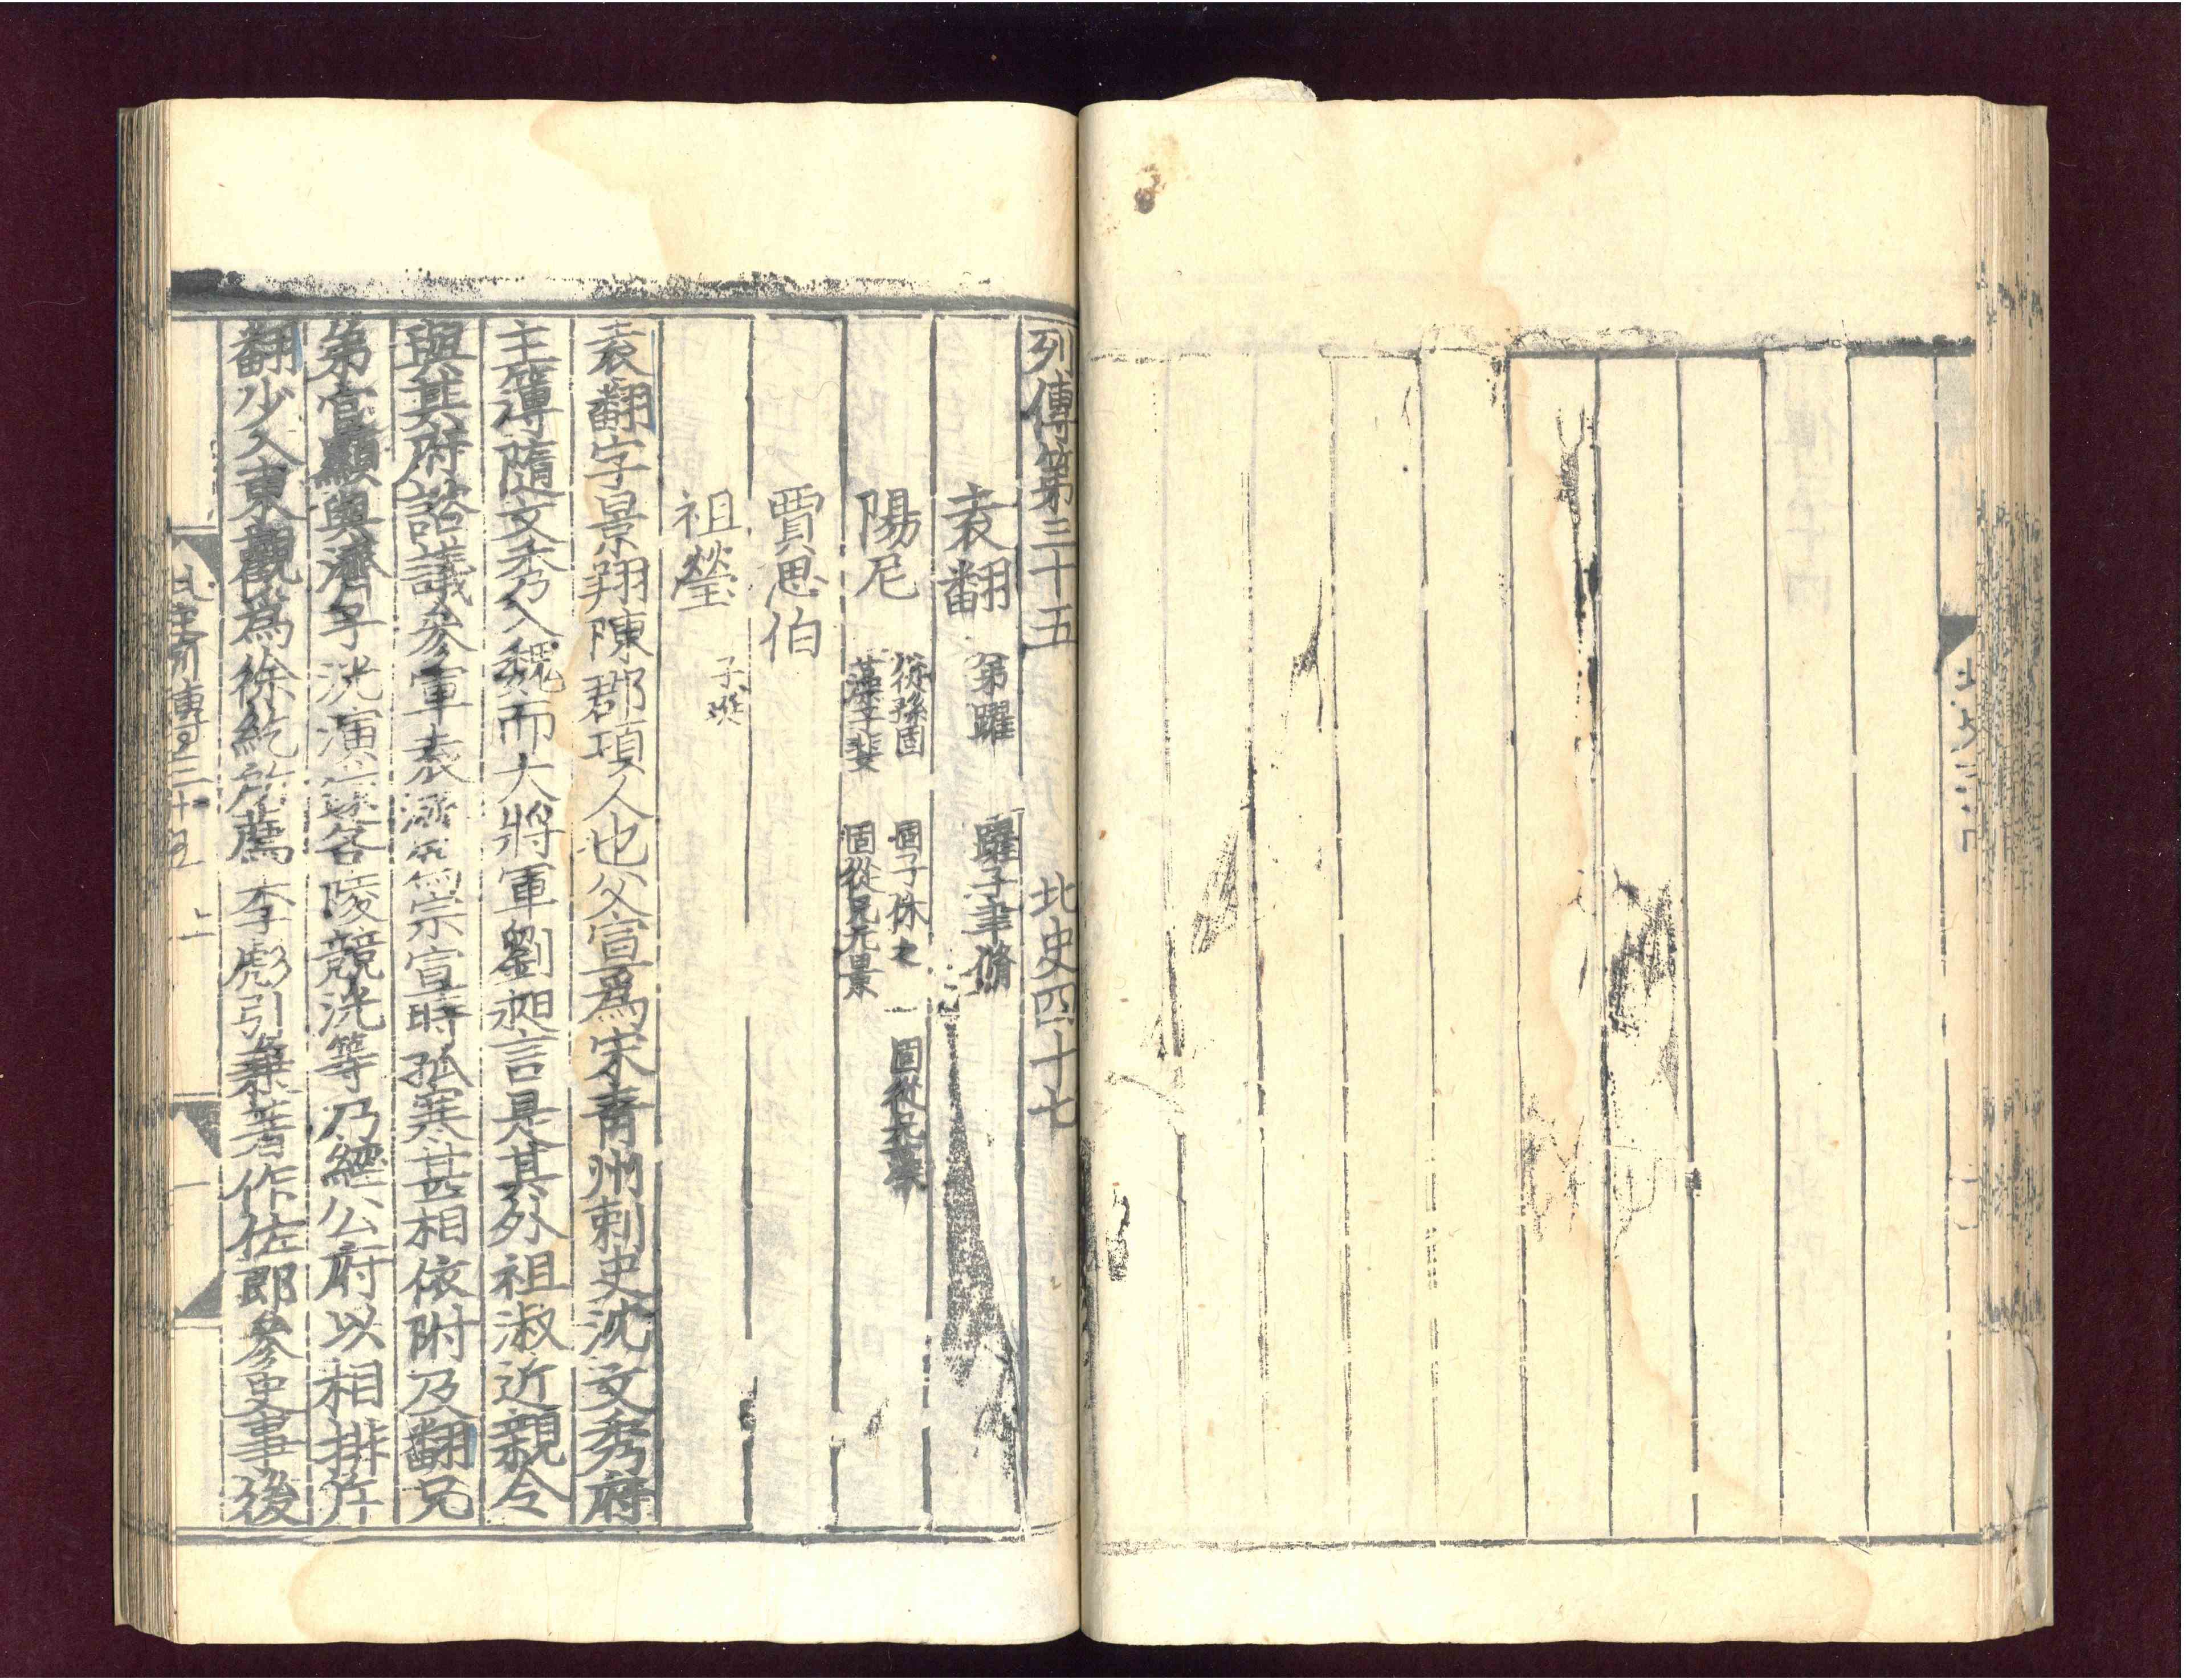 列傳第三十五　北史四十七
袁翻　弟躍　躍子聿脩
陽尼　從孫固　固子休之　固從兄藻
藻子斐　固從兄元景
賈思伯
祖瑩　子珽
袁翻字景翔陳郡項人也父宣爲宋青州刺史沈文秀府
主薄隨文秀入魏而大將軍劉昶言是其外祖淑近親令
與其府諮議參軍袁濟爲宗宣時孤寒甚相依附及翻兄
弟官顯與濟子洸演遂各陵競洸等乃經公府以相排斥
翻少入東觀爲徐紇所薦李彪引兼著作佐郎參史事後
列傳三十五　上